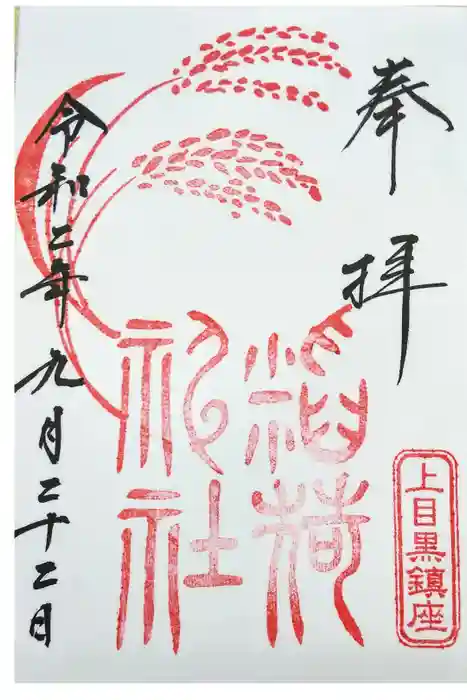 奉拝
稲荷
祀社
上目黒鎮座
令和二年九月二十二日